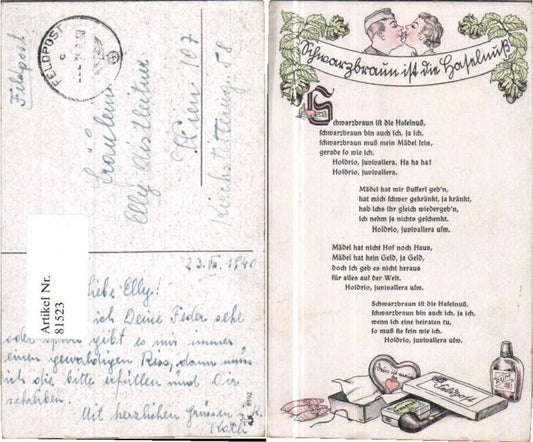 Feldpost
FELDPOST
c
Fräulein
Elly Distleitner
Wien 107
58
Artikel Nr.
81523
23. VII. 1940
Liebe Elly!
ich Deine Feder sehe
gibt es mir immer
einen gewaltigen Riss, dann muss
ich die Bitte erfüllen und Dir
schreiben.
Mit herzlichen Grüssen
Schwarzbraun ist die Haselnuß
Schwarzbraun ist die Haselnuß,
schwarzbraun bin auch ich, ja ich,
schwarzbraun muß mein Mädel sein,
gerade so wie ich.
Holdrio, juvivallera. Ha ha ha!
Holdrio, juvivallera.
Mädel hat mir Busserl geb'n,
hat mich schwer gekränkt, ja kränkt,
hab ichs ihr gleich wiedergeb'n,
ich nehm ja nichts geschenkt.
Holdrio, juvivallera usw.
Mädel hat nicht Hof noch Haus,
Mädel hat kein Geld, ja Geld,
doch ich geb es nicht heraus
für alles auf der Welt.
Holdrio, juvivallera usw.
Schwarzbraun ist die Haselnuß,
schwarzbraun bin auch ich, ja ich,
wenn ich eine heiraten tu,
so muß sie sein wie ich.
Holdrio, juvivallera usw.
Feldpost